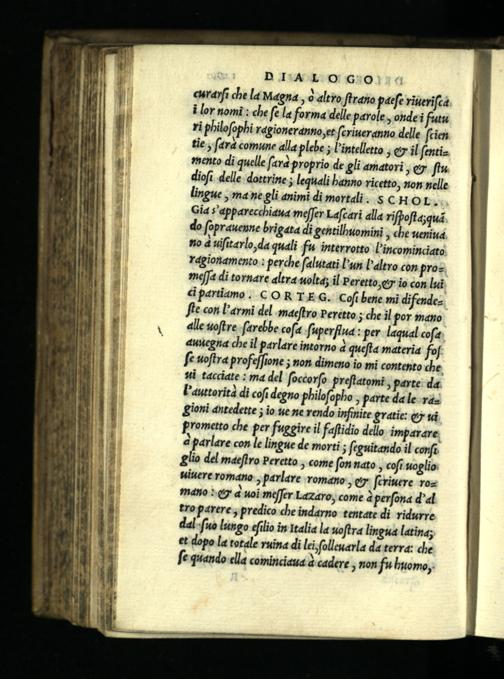 DIALOGO
curarsi che la Magna, ò altro strano paese riuerisca
i lor nomi: che se la forma delle parole, onde i futu
ri philosophi ragioneranno, et scriueranno delle scien
tie, sarà comune alla plebe; l'intelletto, & il senti=
mento di quelle sarà proprio de gli amatori, & stu
diosi delle dottrine; lequali hanno ricetto, non nelle
lingue, ma ne gli animi di mortali. SCHOL.
Gia s'apparecchiaua messer Lascari alla risposta; quã
do soprauenne brigata di gentilhuomini, che ueniua
no à uisitarlo, da quali fu interrotto l'incominciato
ragionamento: perche salutati l'un l'altro con pro=
messa di tornare altra uolta; il Peretto, & io con lui
ci partiamo. CORTEG. Cosi bene mi difende=
ste con l'armi del maestro Peretto; che il por mano
alle uostre sarebbe cosa superflua: per laqual cosa
auuegna che il parlare intorno à questa materia fos
se uostra professione; non dimeno io mi contento che
ui tacciate: ma del soccorso prestatomi, parte da
l'auttorità di cosi degno philosopho, parte da le ra=
gioni antedette; io ue ne rendo infinite gratie: & ui
prometto che per fuggire il fastidio dello imparare
à parlare con le lingue de morti; seguitando il consi
glio del maestro Peretto, come son nato, cosi uoglio
uiuere romano, parlare romano, & scriuere ro=
mano: & à uoi messer Lazaro, come à persona d'al
tro parere, predico che indarno tentate di ridurre
dal suo lungo esilio in Italia la uostra lingua latina;
et dopo la totale ruina di lei, solleuarla da terra: che
se quando ella cominciaua à cadere, non fu huomo,